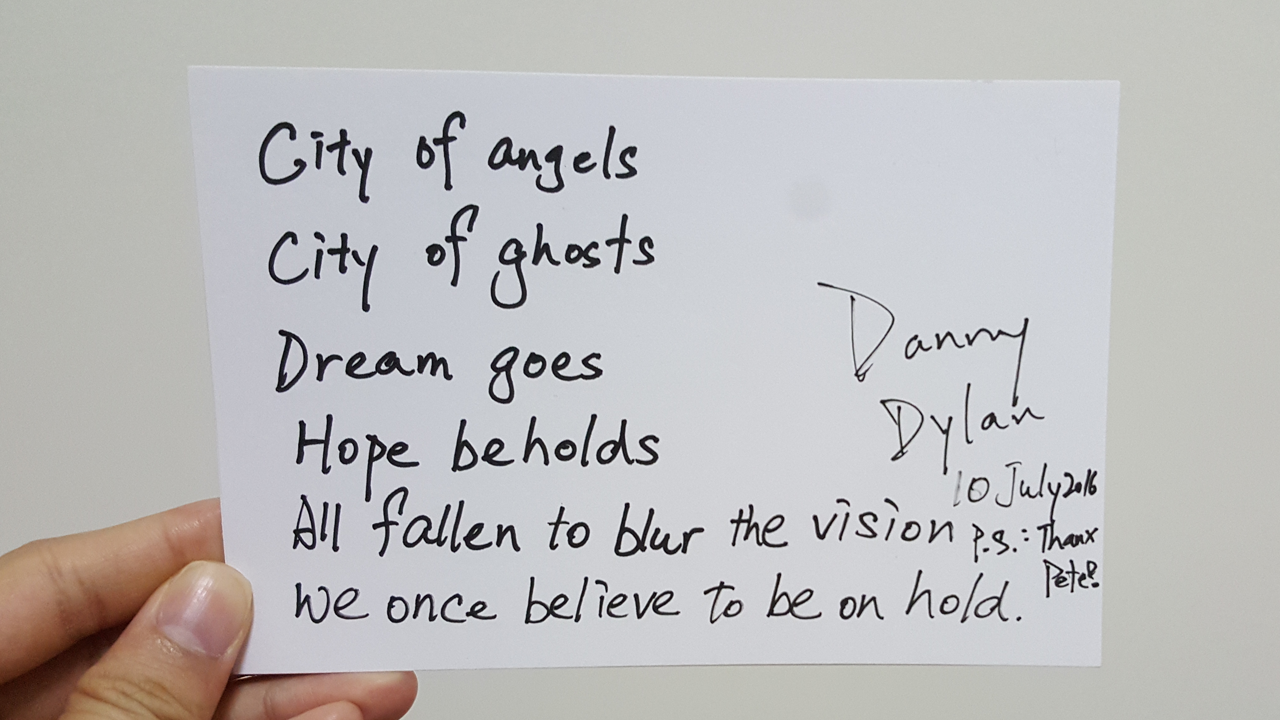 City of angels
City of ghosts
Dream goes
Hope beholds
All fallen to blur the vision
We once believe to be on hold.
Danny
Dylan
10 July 2016
P.S.: Thanx
Pete!